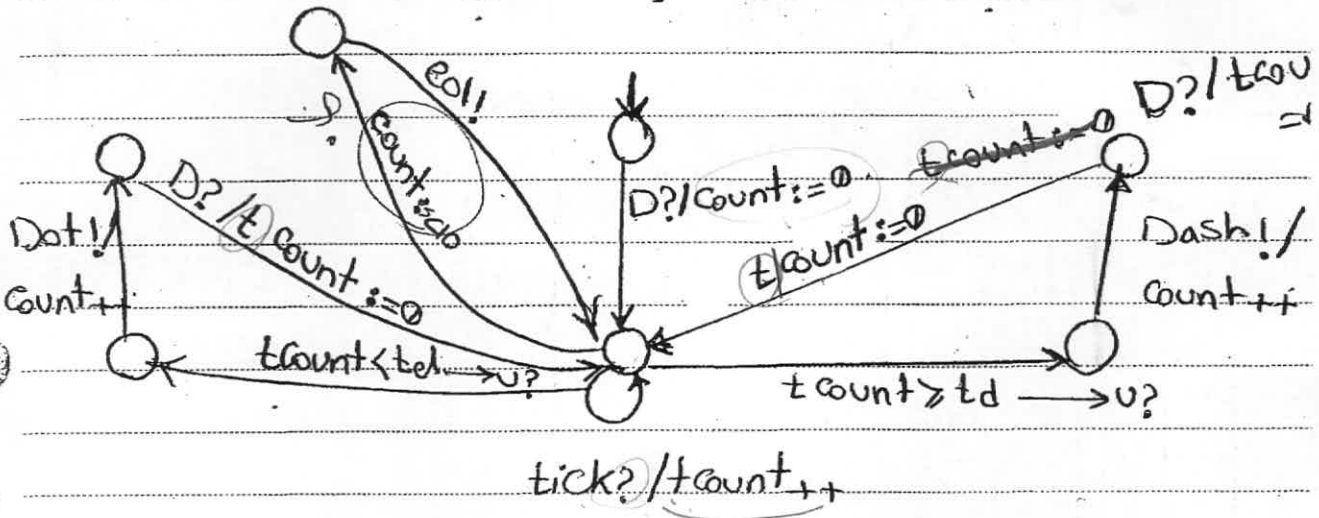 eol!
D?/tcou
=
tcount:=0
count≤10
D?/count:=0
D?/tcount:=0
tcount:=0
Dot!/
count++
Dash!/
count++
tcount<td→u?
tcount≥td→u?
tick?/tcount++